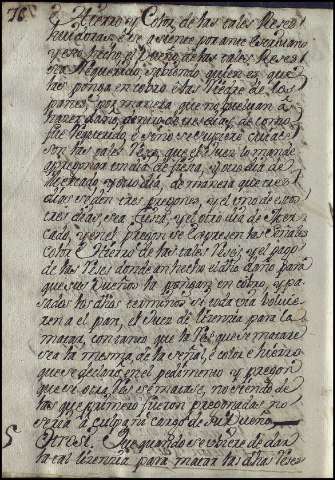 76
Hierro, y Color de las tales Reses
huidoras, e se asiente por ante escrivano
y esto hecho, el Dueño de las tales Reses
sea requerido, sabiendo quien es que
las ponga en cobro e las Riedre de los
panes, por manera que no puedan a
hazer daño, dentro de diez dias de como
fue requerido, e si no se supiere cuias
son las tales Reses, que el Juez lo mande
apregonar en dia de fiesta, y otro dia de
Mercado, y otro dia, de manera que
dichos se den tres pregones, y el uno de estos
tres dias, sea fiesta, y el otro dia de Mer
cado, y en el pregon se expresen las señales
color e Hierro de las tales Reses, y el pago
de las Reses donde an hecho el dicho daño para
que sus Dueños las pongan en cobro, y pa
sados los dichos terminos si toda via volvie
ren a el pan, el Juez dé lizenzia para la
matar, con tanto que la Res que se matare
sea la mesma, de la señal, e color e hierro
que se declaró en el pedimento, y pregon
que si otra Res se matase, no siendo de
las que primero fueron pregonadas, no
seria a culpa ni cargo de su Dueño
5 Otrosi. Que quando se ubiere de dar
la tal lizenzia para matar las dichas Reses